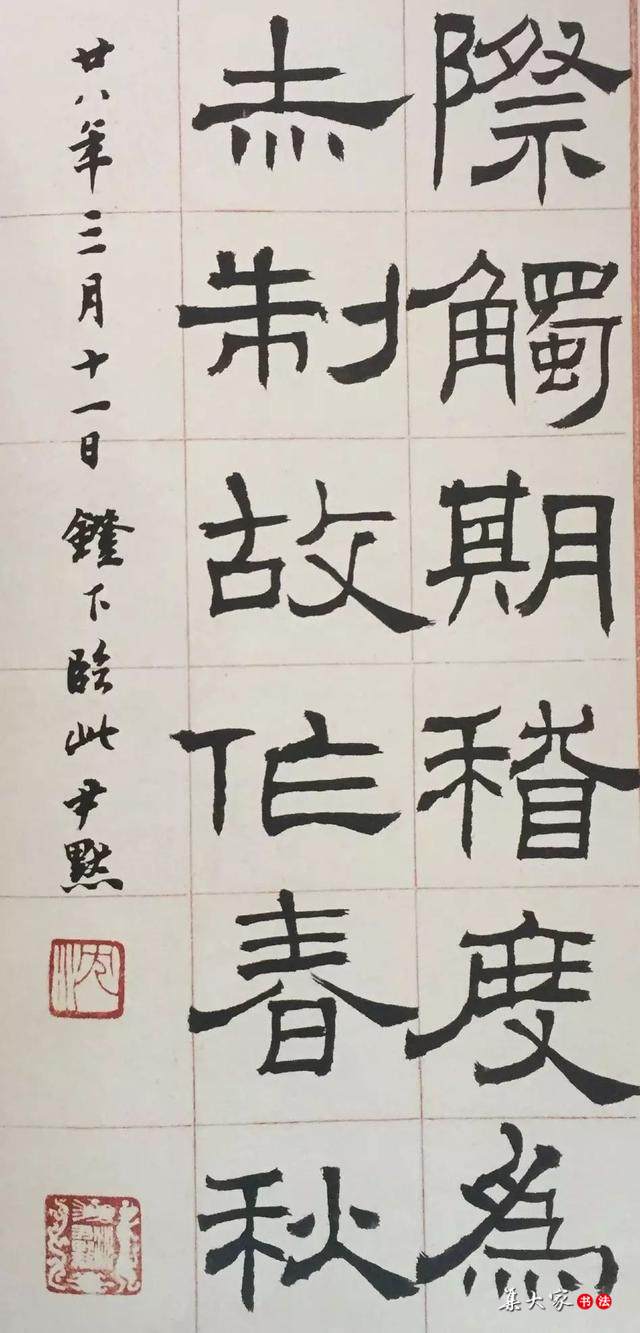 際觸期稽度為
赤制故作春秋
廿八年三月十一日鐙下臨此尹默
沈
集大家书法